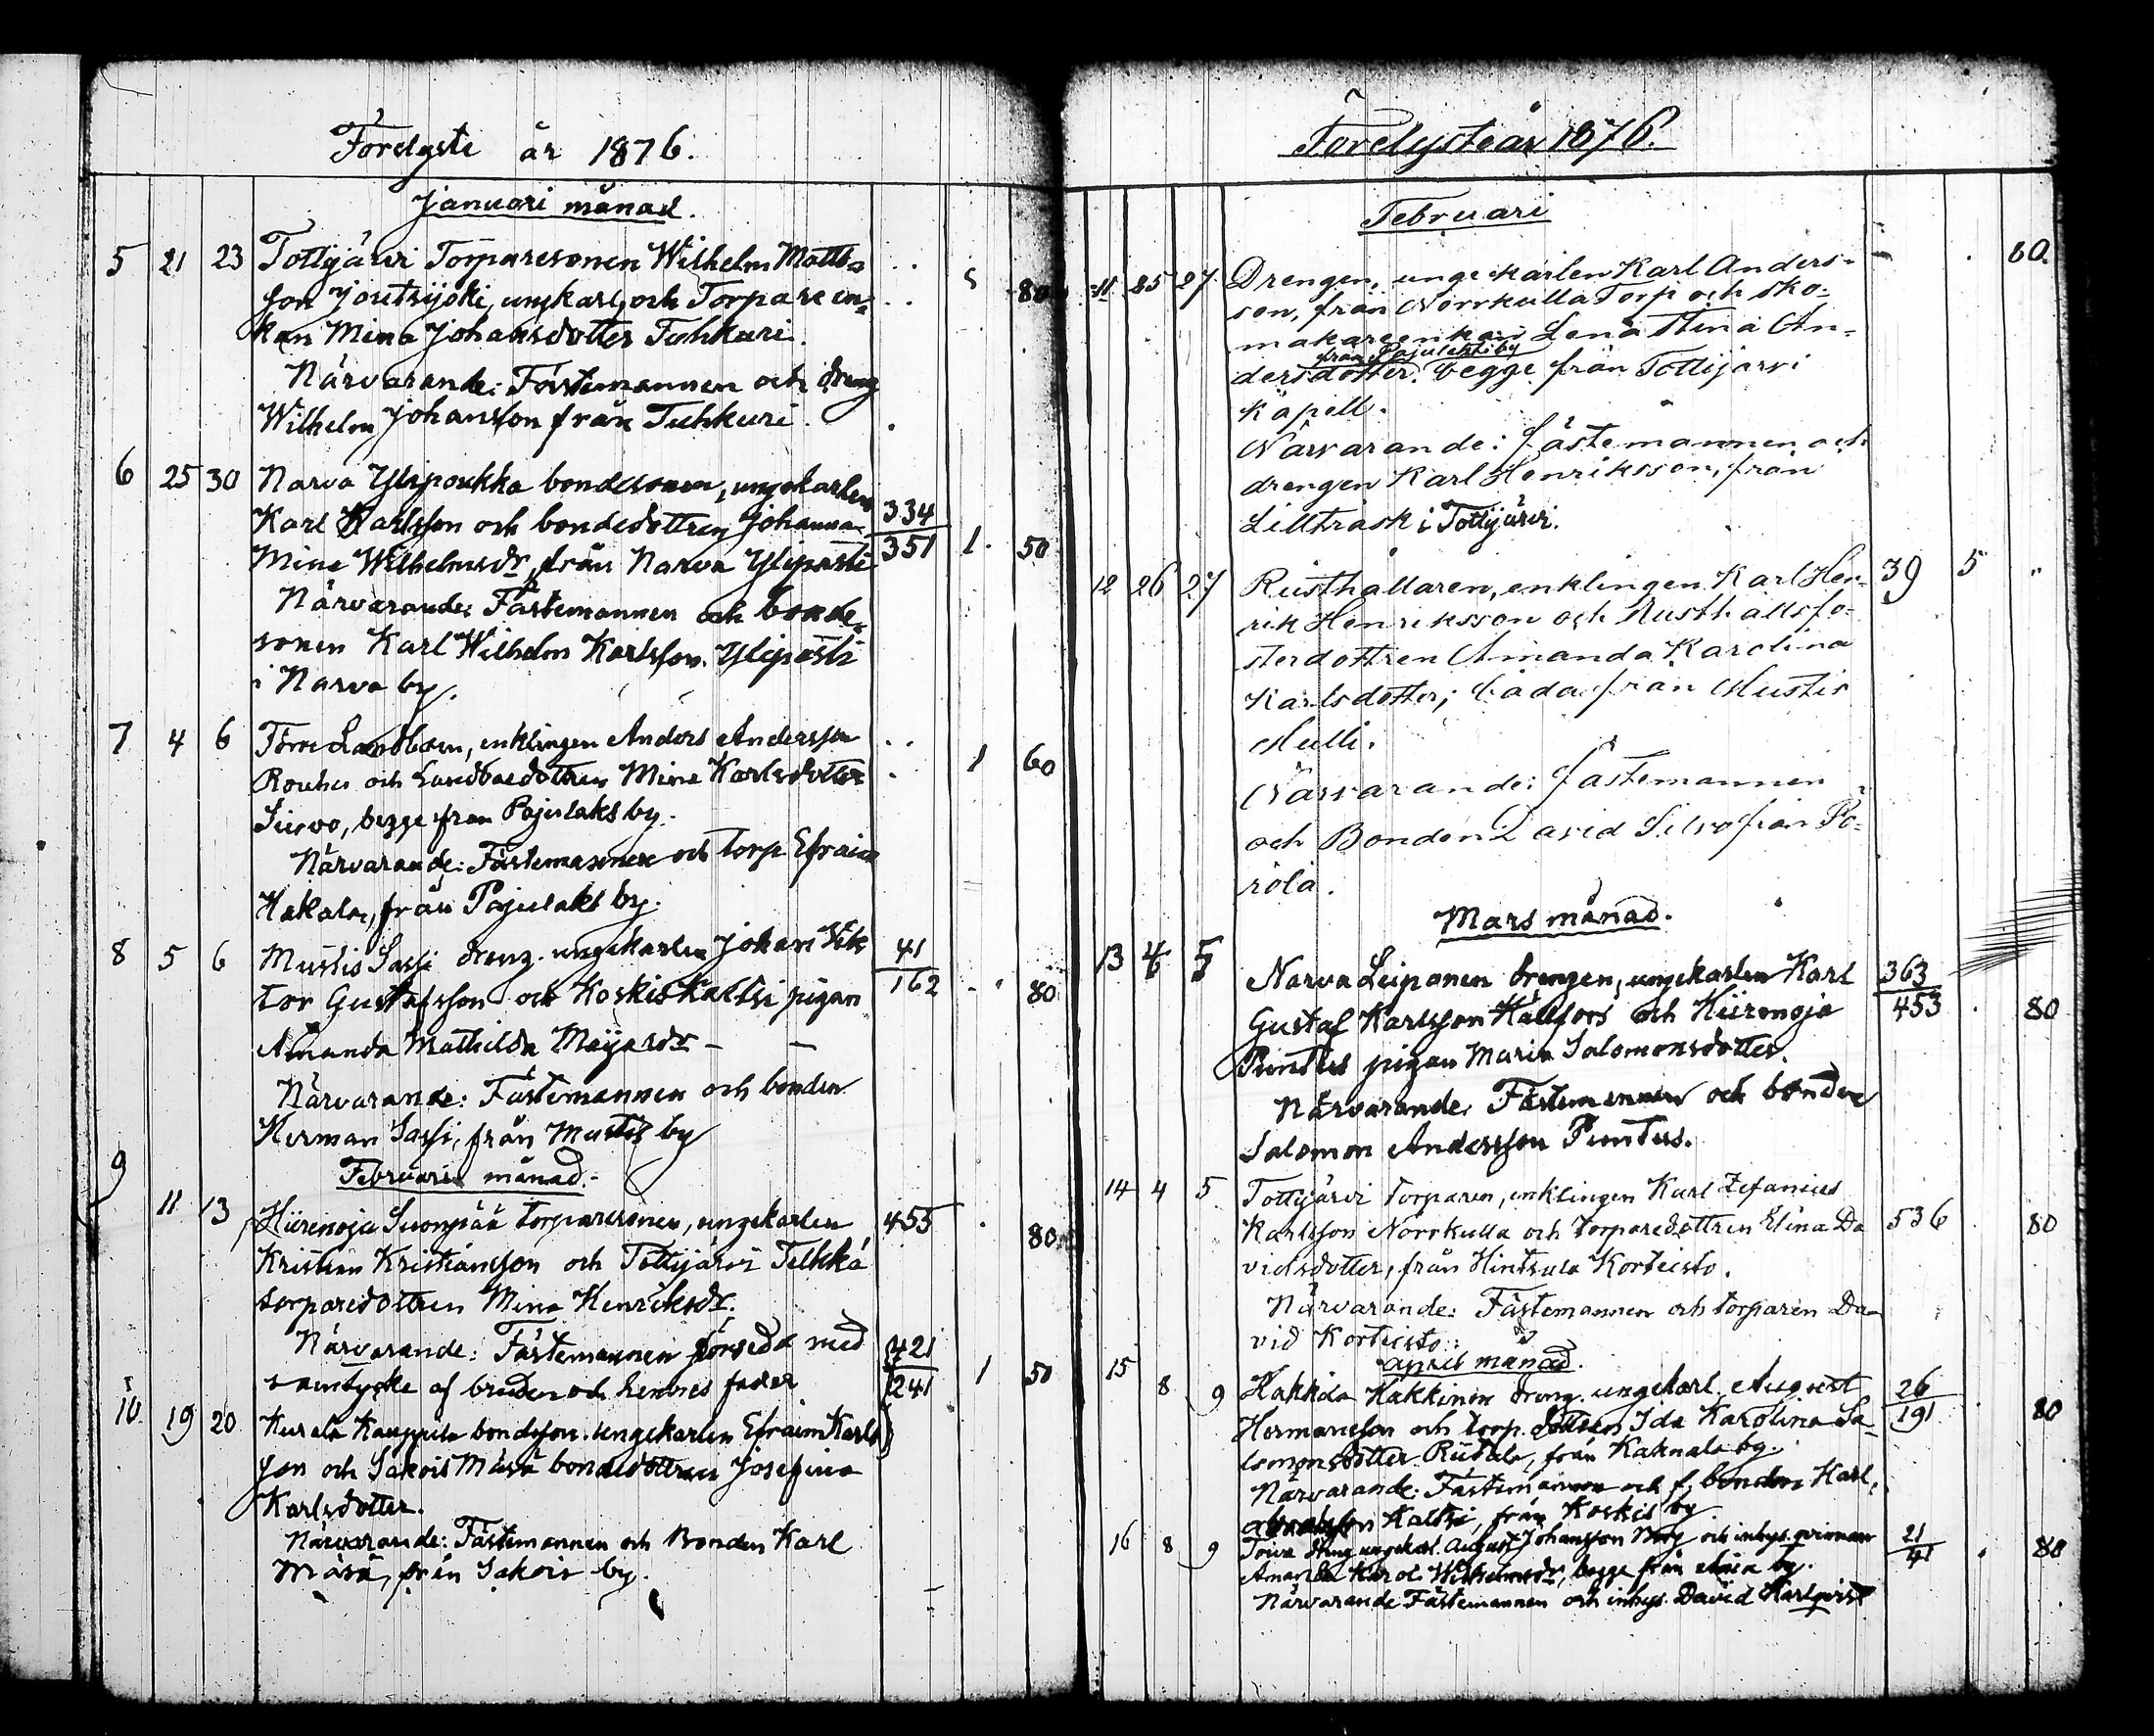 Förelyste år 1876.
Januari månad.
5 21 23 Tottijärvi Torparesonen Wilhelm Matts-
son Joutsijoki, ungkarl, och Torpareen- 80
kan Mina Johansdotter Tuhkuri.
Närvarande: Fästemannen och dreng
Wilhelm Johansson från Tuhkuri.
6 25 30 Narva Ylipoukka bondesonen, ungekarlen
Karl Karlsson och bondedottren Johanna 334
Mina Wilhelmsdr, från Narva Yliparsti 351 1. 50
Närvarande: Fästemannen och bonde-
sonen Karl Wilhelm Karlsson Yliparsti
i Narva by.
7 4 6 Landboen, enklingen Anders Andersson
och Landboedottren Mina Karlsdotter 1 60
begge från Pajulaks by.
Närvarande: Fästemannen och torp. Efraim
Hakala, från Pajulaks by.
8 5 6 Mustis Sassi dreng. ungekarlen Johan Vik 41
tor Gustafsson och Koskis Kaltsi pigan 162 80
Amanda Mathilda Maijasdr — —
Närvarande: Fästemannen och bonden
Herman Sassi, från Mustis by
9
Februari månad.
11 13 Hiirenoja Suonpää torparesonen, ungekarlen 455
Kristian Kristiansson och Tottijärvi 80
torparedottren Mina Henriksdr.
Närvarande: Fästemannen försedd med 421
samtycke af bruden och hennes fader 241 1 50
10. 19 20 Kurala Kauppila bondeson. ungekarlen Efraim Karls
son och Sakois Mäsä bondedottren Josefina
Karlsdotter.
Närvarande: Fästemannen och Bonden Karl
Mäsä, från Sakois by.
Förelyste år 1876.
Februari
60.
11 25 27 Drengen, ungekarlen Karl Anders-
son, från Norrkulla Torp och sko-
makareenkan Lena Stina An-
från Pajulahti by
dersdotter. begge från Tottijärvi
kapell.
Närvarande: fästemannen och
drengen Karl Henriksson, från
Lillträsk i Tottijärvi.
12 26 27 Rusthållaren, enklingen Karl Hen- 39 5 "
rik Henriksson och Rusthållsfo-
sterdottren Amanda Karolina
Karlsdotter; båda från Mustis
Mulli.
Närvarande: fästemannen
och Bonden David Silvo från Po-
rola.
Mars månad.
13 4 5 Narva Leiponen drengen, ungekarlen Karl 363
Gustaf Karlsson Källfors och Hiirenoja 453 80
Puntus pigan Maria Salomonsdotter.
Närvarande: Fästemannen och bonden
Salomon Andersson Puntus.
14 4 5 Tottijärvi torparen, enklingen Karl Zefanius
Karlsson Norrkulla och torparedottren Elina Da 536 80
vidsdotter, från Hintsala Korteisto.
Närvarande: Fästemannen och torparen Da-
vid Korteisto.
April månad.
15 8 9 Kakkila Hakkinen dreng. ungekarl. August 26
Hermansson och torp. dottren Ida Karolina Sa- 191 80
lomonsdotter från Kaknala by.
Närvarande: Fästemannen och f. bonden Karl
Abrahsson Kaltsi, från Koskis by
16 8 9 dreng ungekarl. August Johansson och inhys. qvinnan 21
Amanda Karol. Wilhelmsdr, begge från by. 41 80
Närvarande Fästemannen och inhys. David Karlqvist